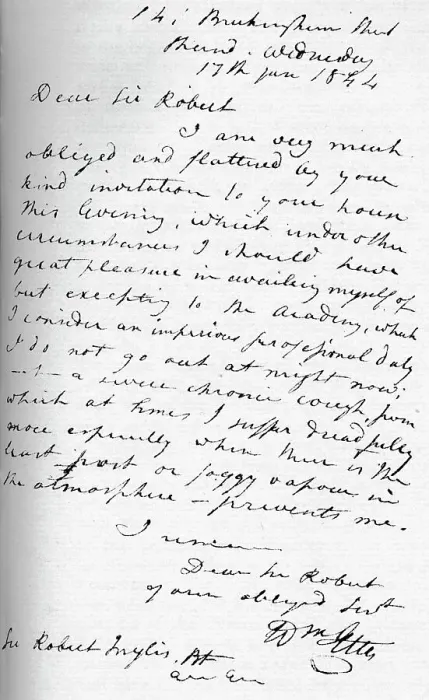 14; Buckingham Street
Strand. Wednesday
17th Jan 1844
Dear Sir Robert
I am very much
obliged and flattered by your
kind invitation to your house
this Evening, which under other
circumstances I should have
great pleasure in availing myself of
but excepting to the Academy, which
I consider an imperious professional duty
I do not go out at night now;
a severe chronic cough, from
which at times I suffer dreadfully
more especially when there is the
least frost or foggy vapour in
the atmosphere – prevents me.
I remain
Dear Sir Robert
your obliged Servt
Wm Etty
Sir Robert Inglis. Bt